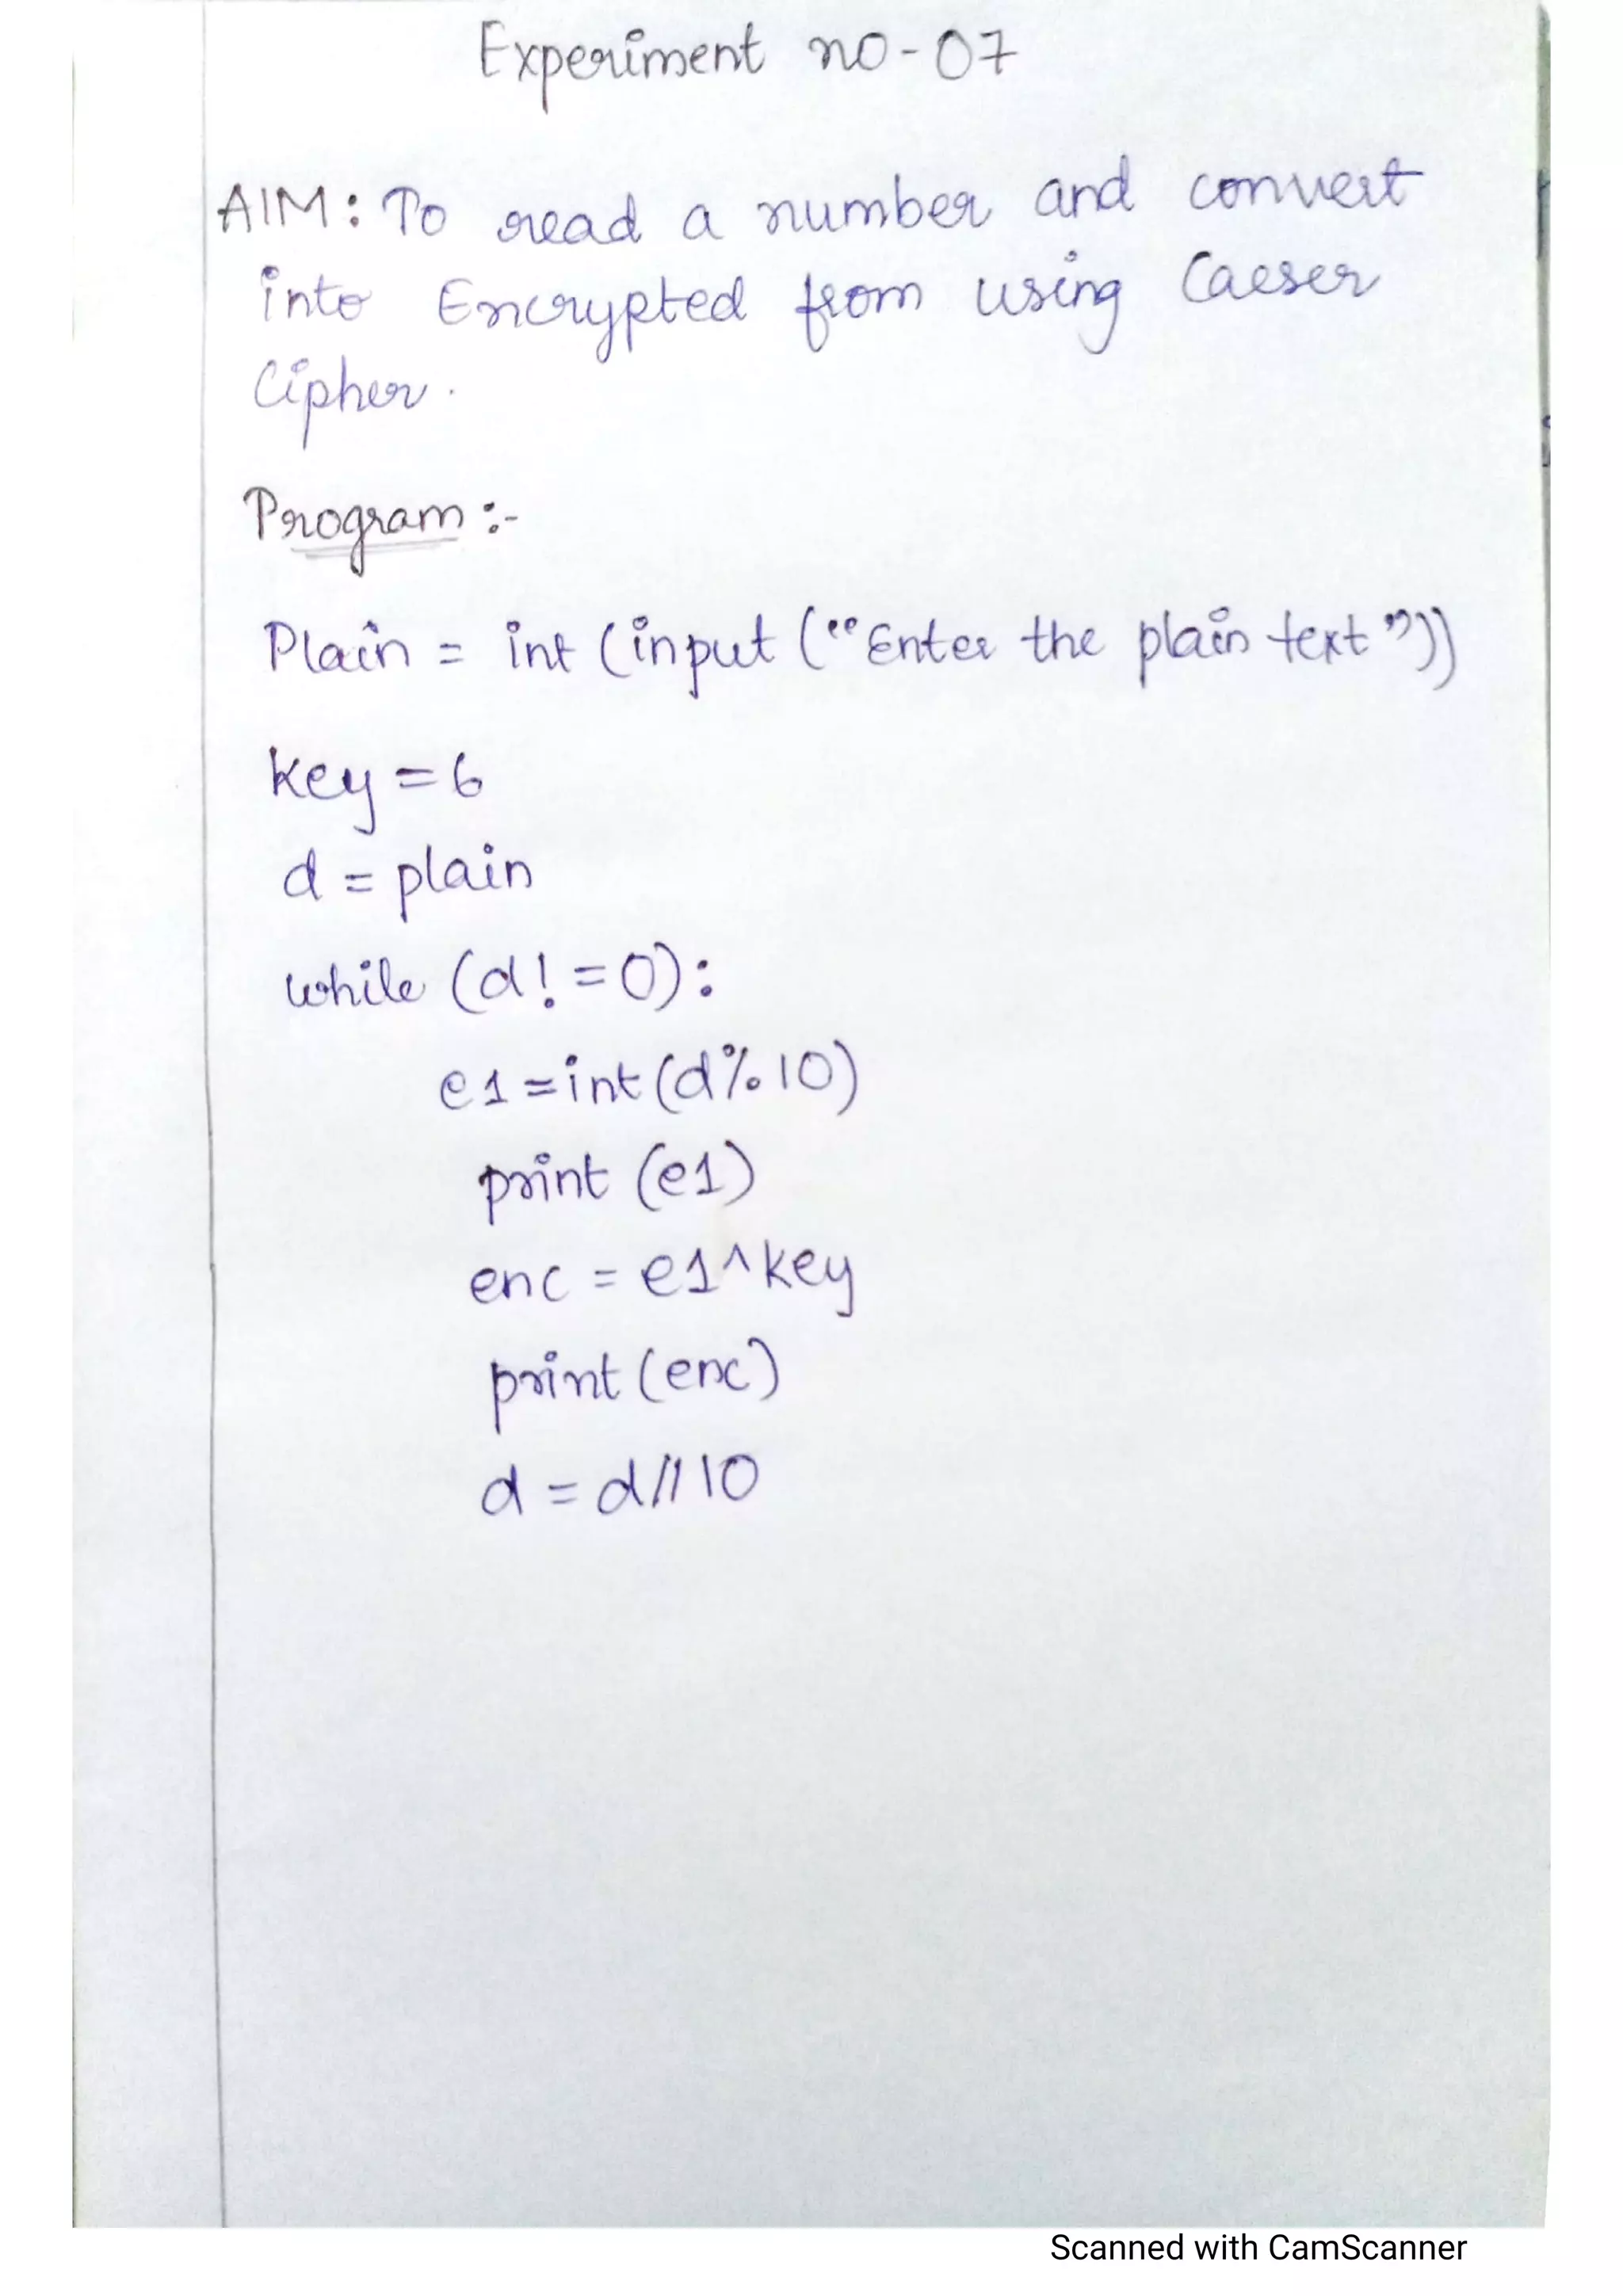 Experiment no - 07
AIM: To read a number and convert
into Encrypted from using Caeser
Cipher.
Program :-
Plain = int (input ("Enter the plain text"))
key = 6
d = plain
while (d! = 0):
e1 = int (d % 10)
print (e1)
enc = e1 ^ key
print (enc)
d = d // 10
Scanned with CamScanner